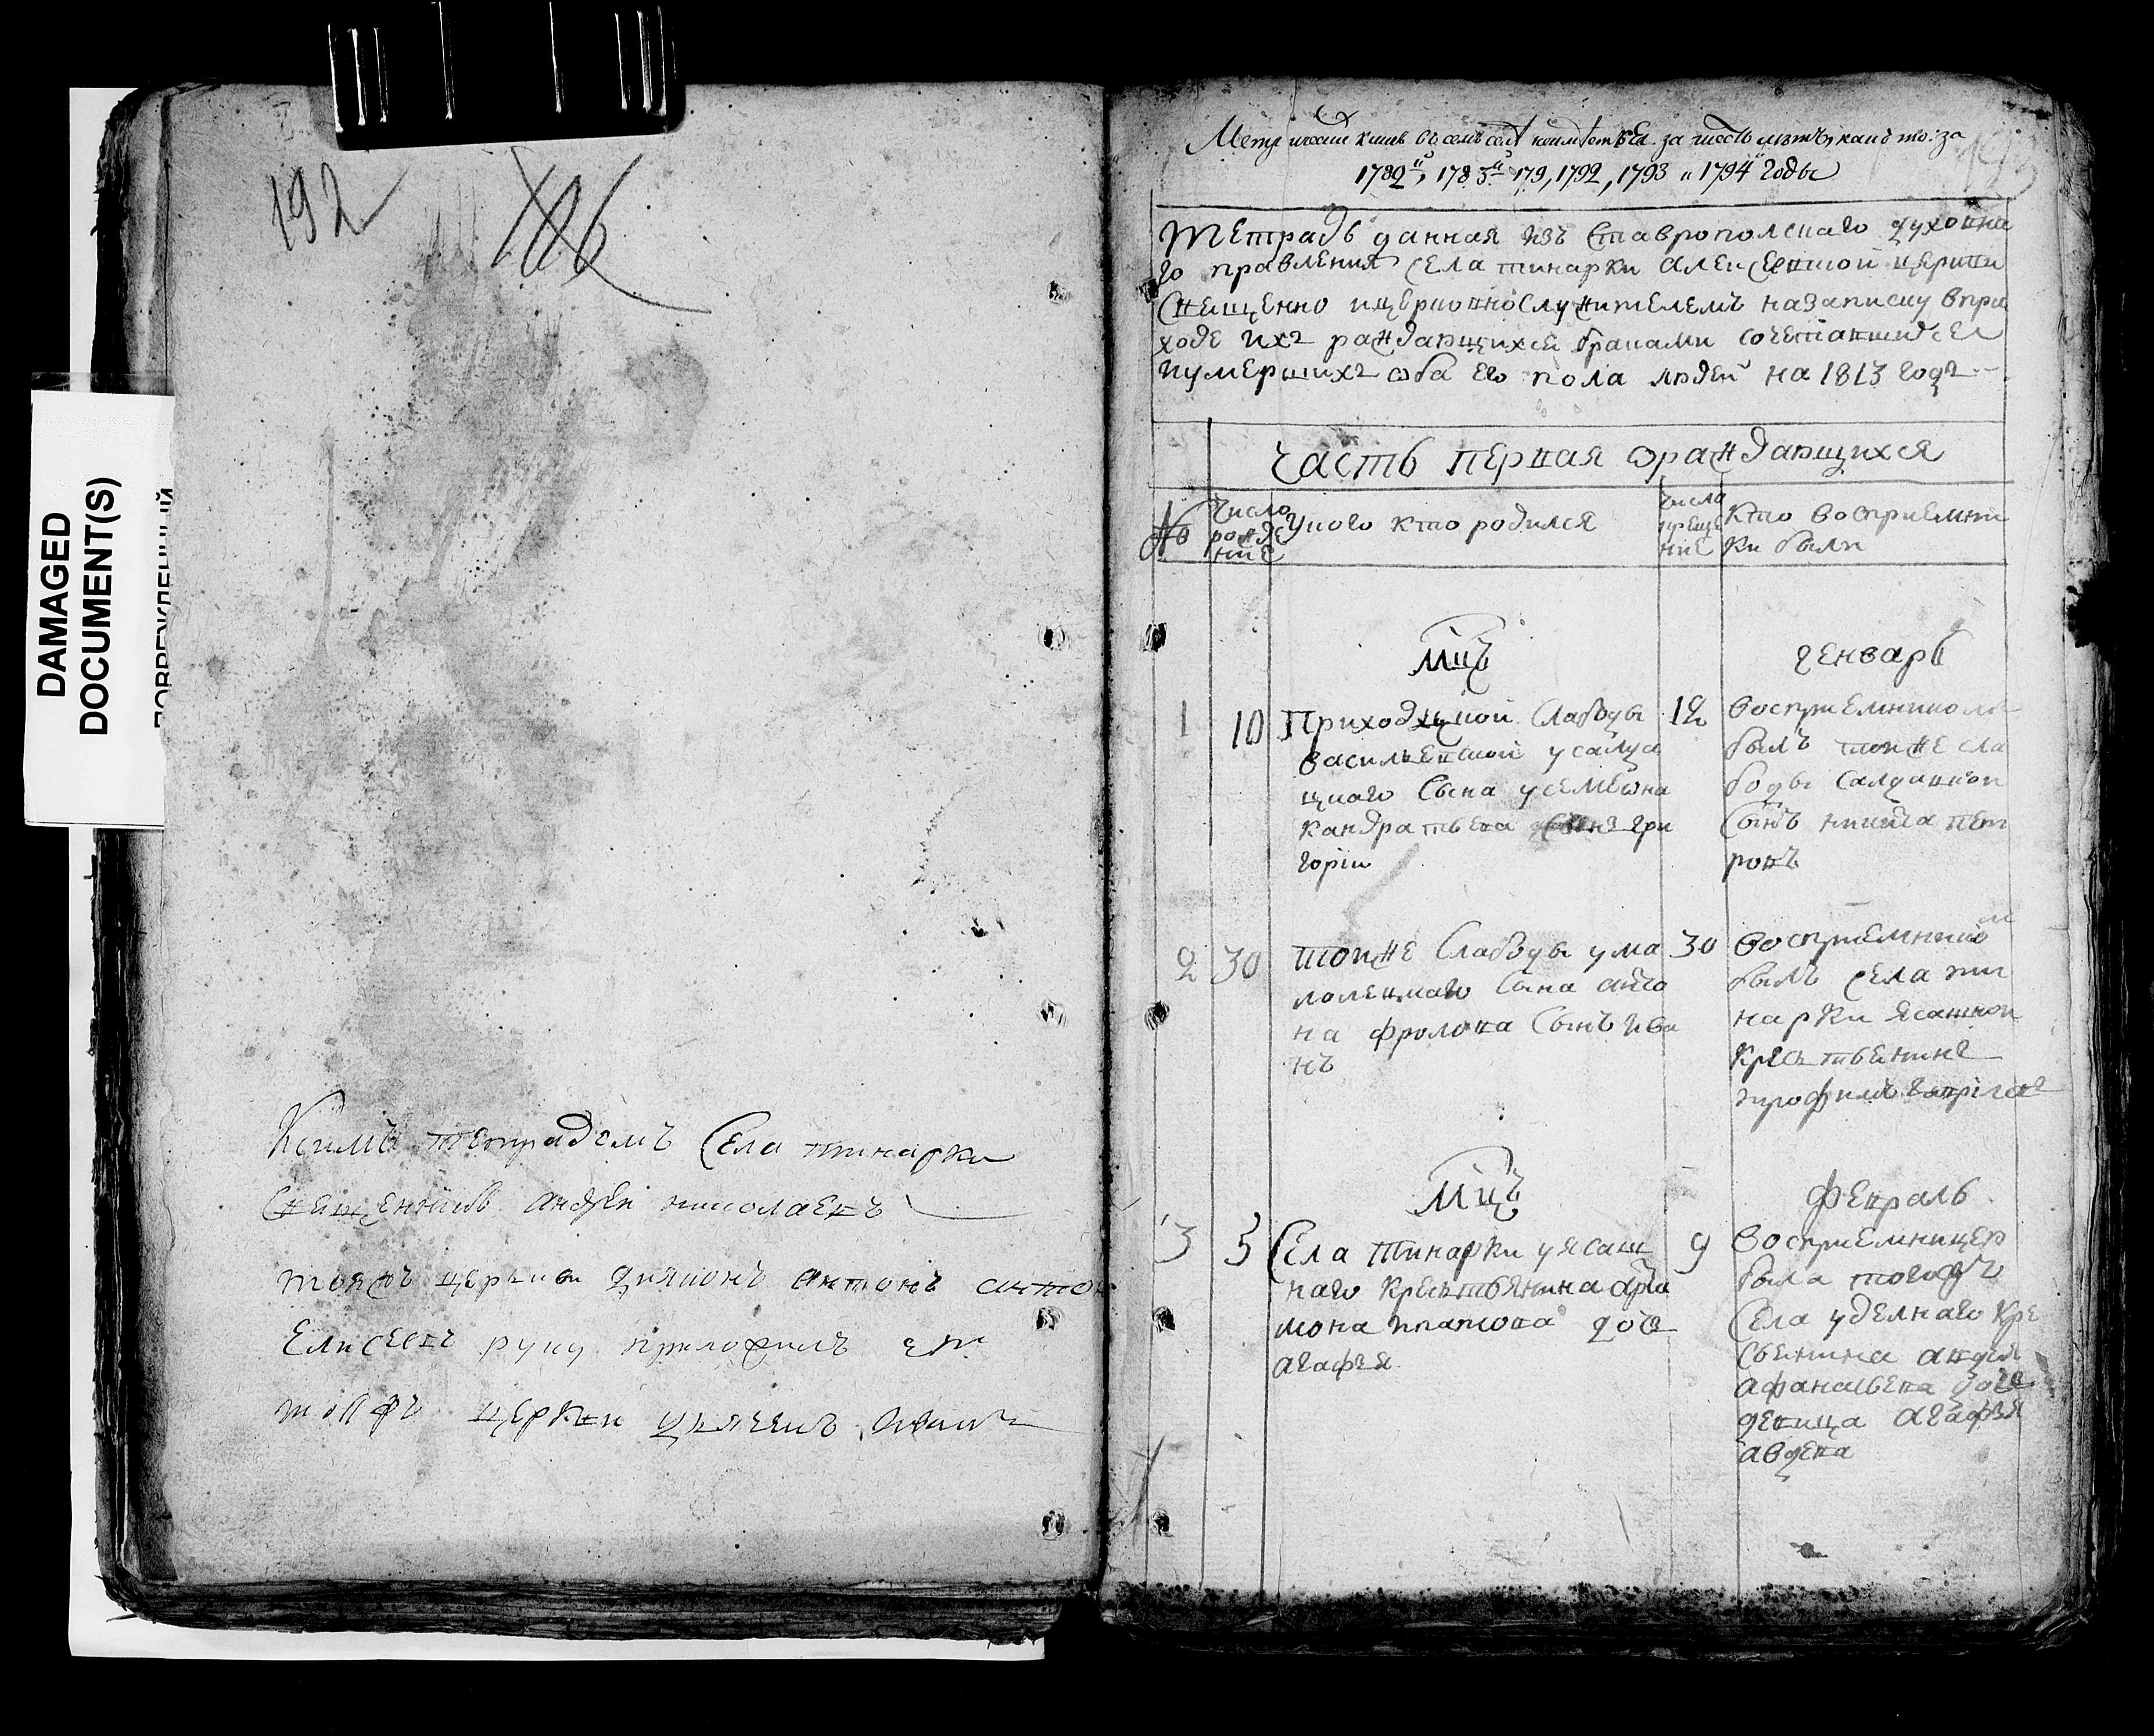 192
186
DAMAGED
DOCUMENT(S)
ПОВРЕЖДЕННЫЙ
Ксимъ тетрадемъ Села тинарки
Священникъ андреи николаевъ
тояжъ церькви дияконъ антонъ
Елисеевъ руку приложилъ
тояжъ церкви
за шесть летъ, како то: за
1782й, 1783й 179, 1792, 1793 и 1794 годы
Тетрадь данная изъ Ставрополскаго духовна
го правления Села тинарки алексеевской церкви
Священно ицерковнослужителемъ назаписку впри
ходе ихъ раждающихся браками сочетавшихся
иумершихъ оба его пола людей на 1813 годъ
Часть первая ораждающихся
№
Число
рожде
ние
Укого кто родился
число
креще
ние
Кто восприемни
ки были
Мцъ
генварь
1
10
Приходской Слабоды
васильевской
цкаго Сына усемиона
кандратьева гри
горіи
12
восприемником
былъ тоиже сла
боды Салдацкои
Сынъ никита пет
ровъ
2
30
тоиже Слабоды ума
лолетнаго Сына
на фролова Сынъ ива
нъ
30
восприемником
былъ Села ти
нарки ясашнои
Кресьтьенинъ
трофимъ
Мцъ
февраль
3
5
Села Тинарки уясаш
наго Кресьтьянина
мона платова дочь
агафья
9
восприемницею
была тогожъ
Села уделнаго Кре
Сьенина авдея
афанасьева дочь
девица агафья
авдева